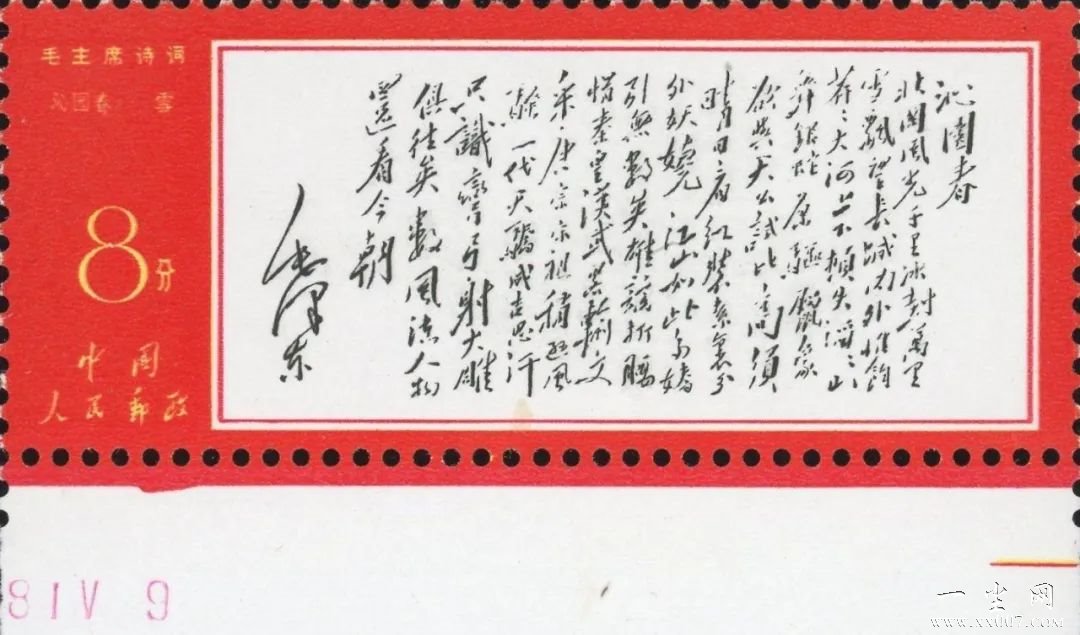 毛主席诗词
沁园春 雪
8分
中国
人民郵政
沁園春
北國風光千里冰封萬里
雪飄望長城内外惟餘
莽〻大河上下頓失滔〻山
舞銀蛇原驅臘象
欲與天公試比高須
晴日看紅裝素裹分
外妖嬈江山如此多嬌
引無數英雄競折腰
惜秦皇漢武畧輸文
采唐宗宋祖稍遜風
騷一代天驕成吉思汗
只識彎弓射大雕
俱往矣數風流人物
還看今朝
毛澤东
81V 9
一尘网